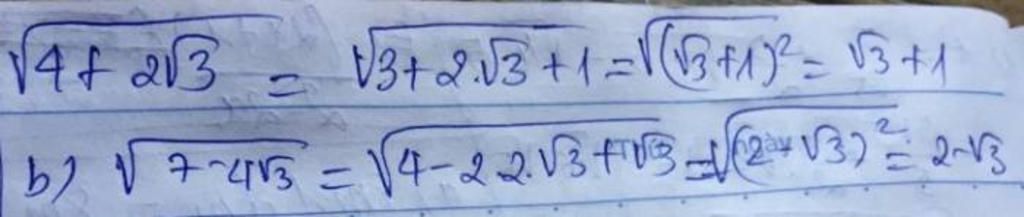 √(4+2√3) = √(3+2.√3+1) = √((√3+1)²) = √3+1
b) √(7-4√3) = √(4-2.2.√3+√3) = √((2-√3)²) = 2-√3